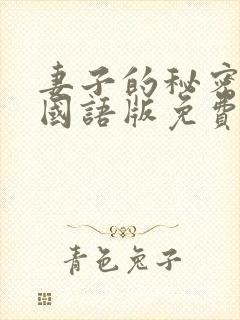 妻子的秘密
國語版免費
青色兔子